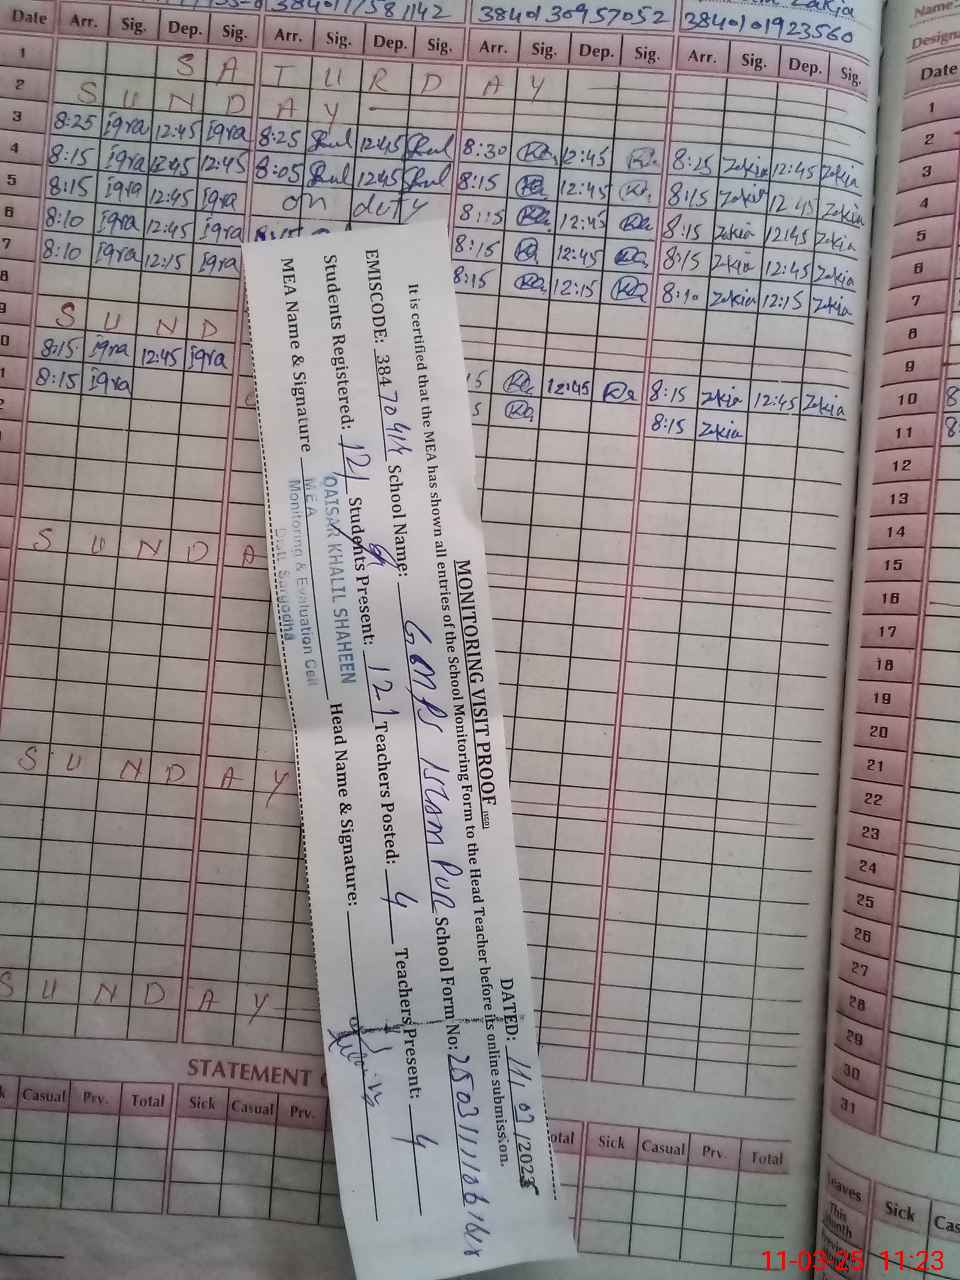 38401 30957052
3840101923560
Name
Date Arr. Sig. Dep. Sig. Arr. Sig. Dep. Sig. Arr. Sig. Dep. Sig. Arr. Sig. Dep. Sig.
1 S A T U R D A Y
2 S U N D A Y
3 8:25 Iqra 12:45 Iqra 8:25 12:45 8:30 12:45 8:25 Zakia 12:45 Zakia
4 8:15 Iqra 12:45 12:45 8:05 12:45 8:15 12:45 8:15 Zakia 12:45 Zakia
5 8:15 Iqra 12:45 Iqra on duty 8:15 12:45 8:15 Zakia 12:45 Zakia
6 8:10 Iqra 12:45 Iqra 8:15 12:45 8:15 Zakia 12:45 Zakia
7 8:10 Iqra 12:15 Iqra 8:15 12:15 8:10 Zakia 12:15 Zakia
8
S U N D
8:15 Iqra 12:45 Iqra 12:45 8:15 Zakia 12:45 Zakia
8:15 Iqra 8:15 Zakia
S U N D A
S U N D A Y
S U N D A Y
MONITORING VISIT PROOF
DATED: 11/03/2025
It is certified that the MEA has shown all entries of the School Monitoring Form to the Head Teacher before its online submission.
EMISCODE: School Name: GMPS ISLAM PUR School Form No:
Students Registered: 121 Students Present: 121 Teachers Posted: 4 Teachers Present: 4
MEA Name & Signature Head Name & Signature:
QAISAR KHALIL SHAHEEN
M.E.A
Monitoring & Evaluation Cell
Distt. Sargodha
STATEMENT
Casual Prv. Total Sick Casual Prv. Total Sick Casual Prv. Total
Date
1
2
3
4
5
6
7
8
9
10
11
12
13
14
15
16
17
18
19
20
21
22
23
24
25
26
27
28
29
30
31
Leaves Sick
This Month
11-03-25 11:23